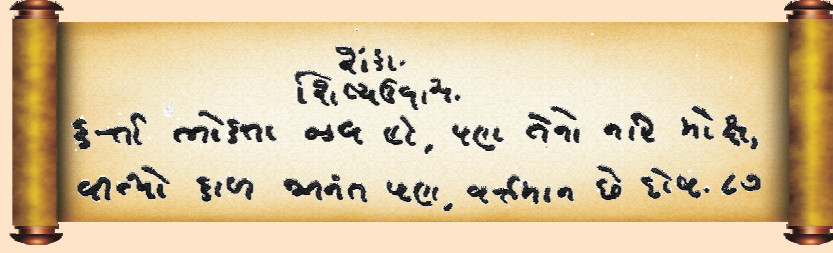 શંકા.
શિષ્યઉવાચ.
કર્ત્તા ભોક્તા જીવ હો, પણ તેનો નહિ મોક્ષ,
વીત્યો કાળ અનંત પણ, વર્ત્તમાન છે દોષ. ૮૭